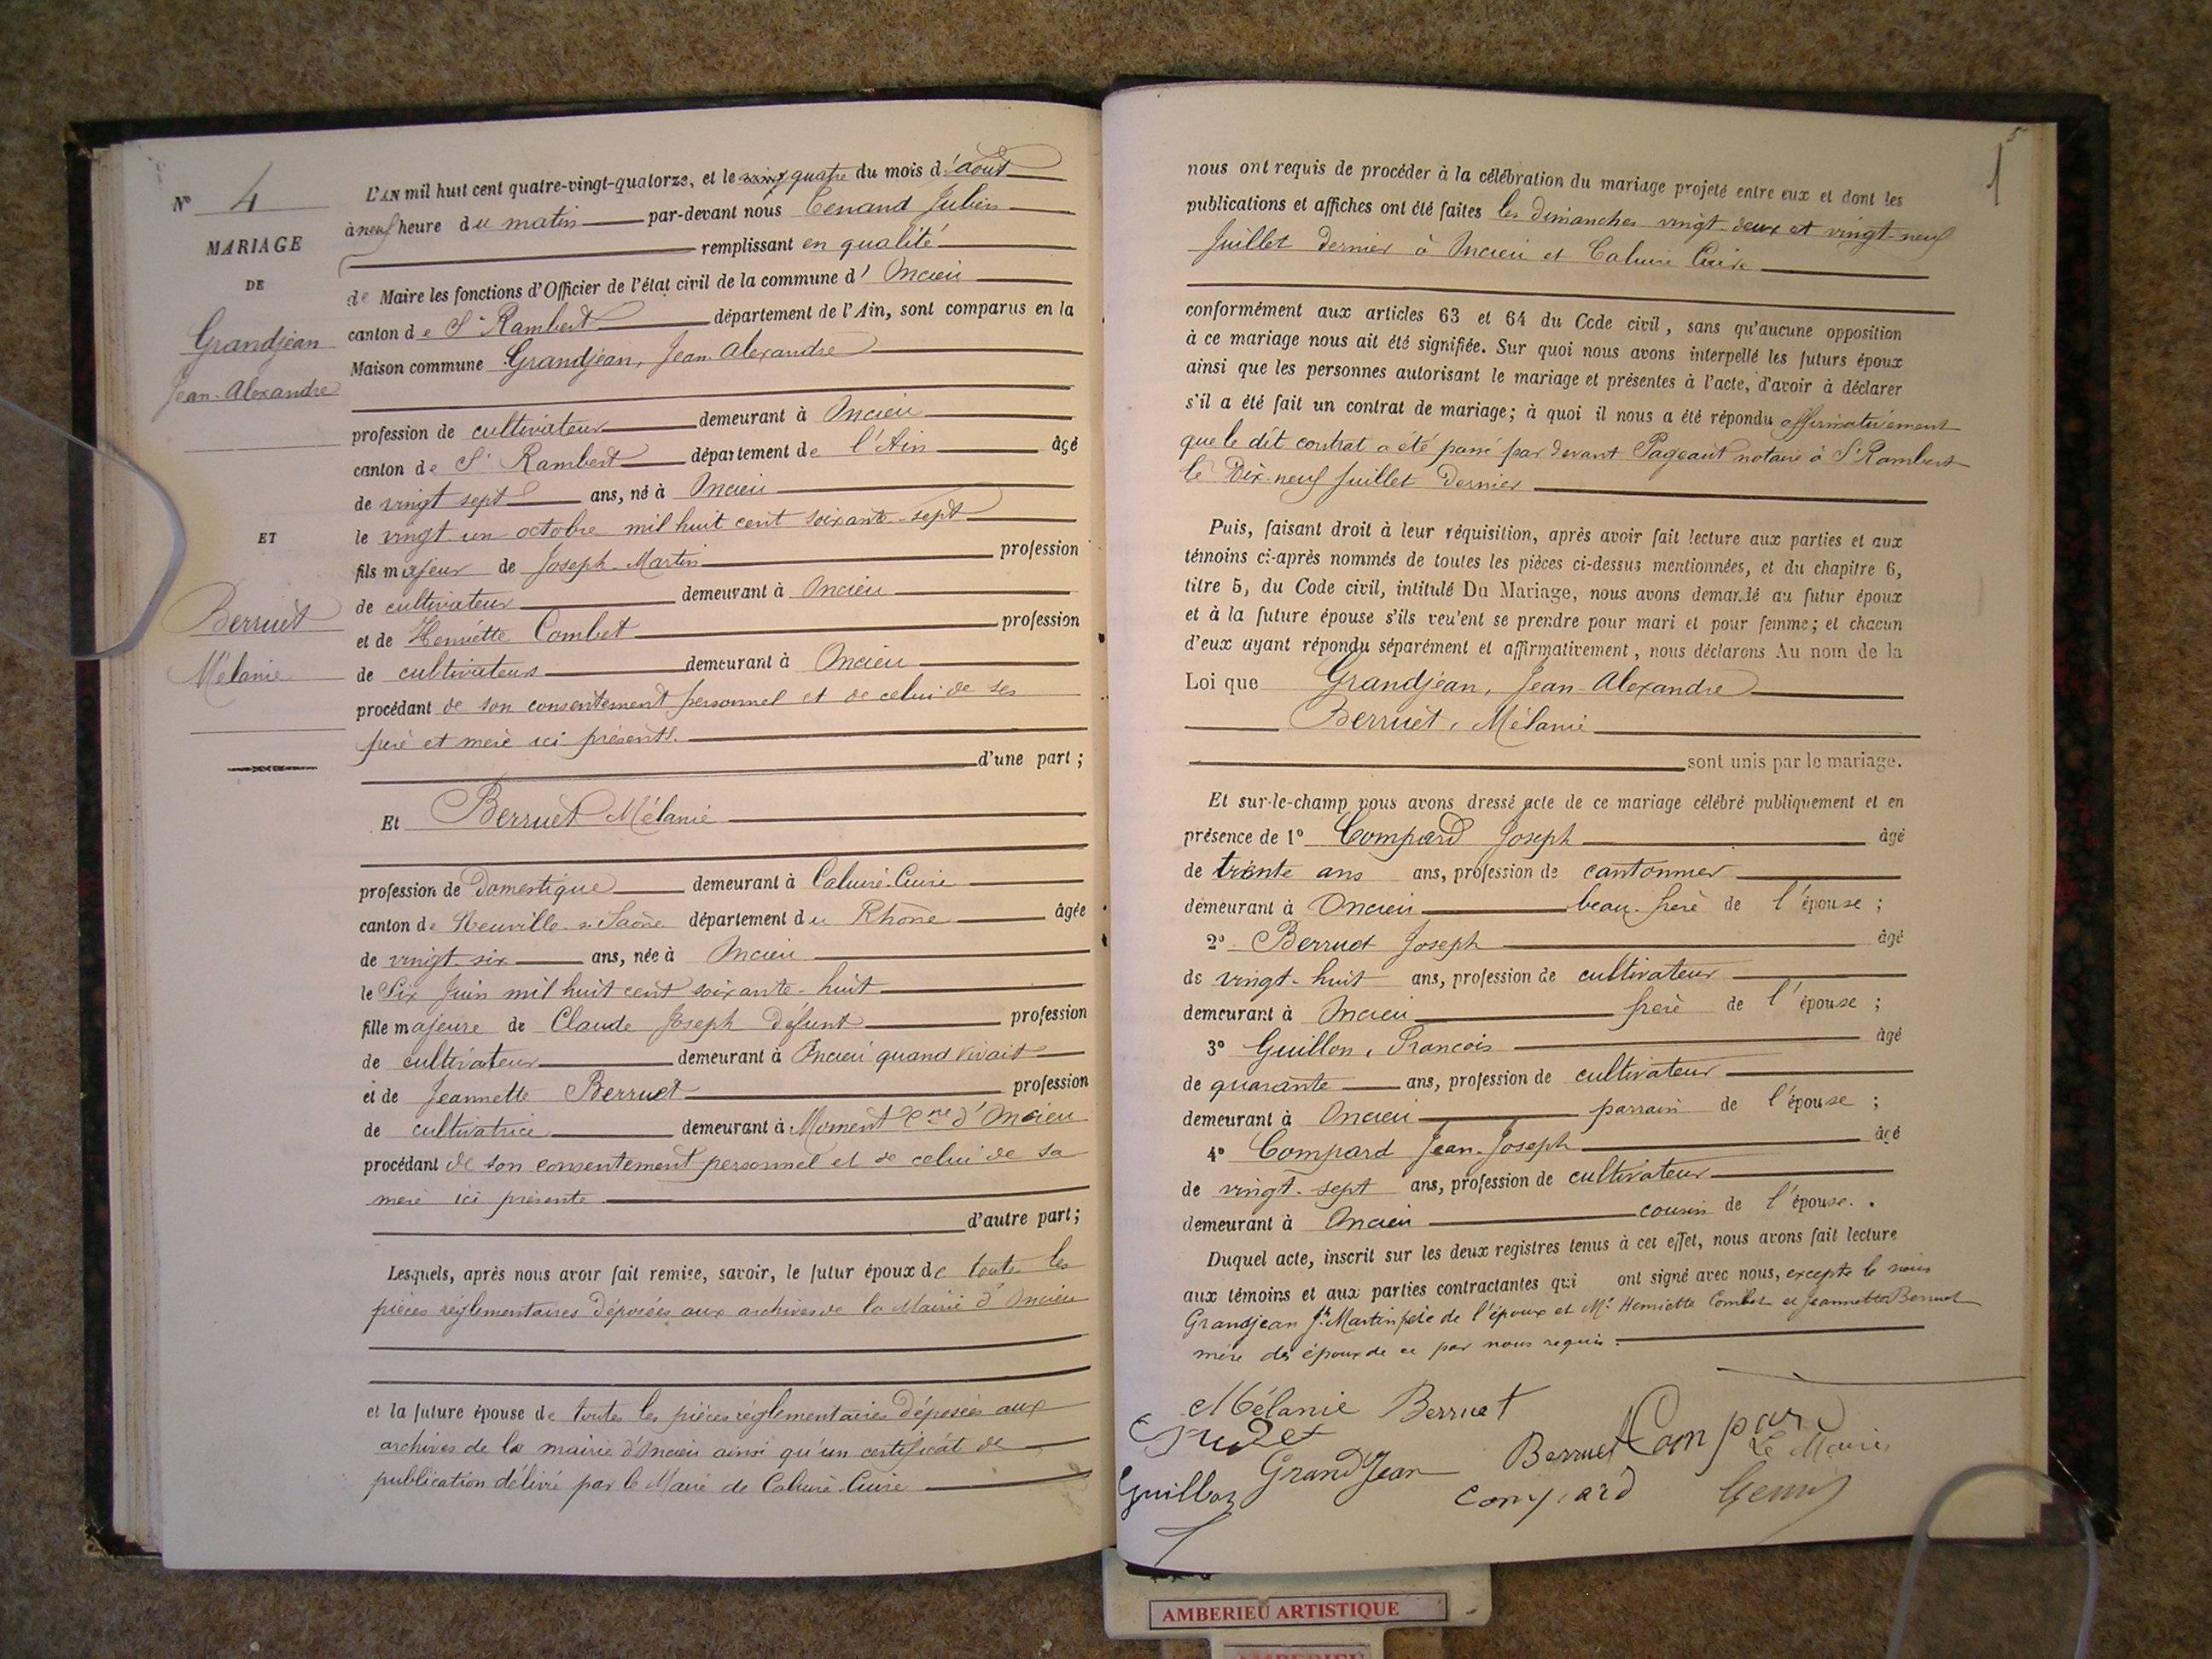 N° 4
MARIAGE
DE
Grandjean
Jean-Alexandre
ET
Berruet
Mélanie
L'AN mil huit cent quatre-vingt-quatorze, et le quatre du mois d'Aout
à neuf heure du matin par-devant nous Tenand Julien
remplissant en qualité
de Maire les fonctions d'Officier de l'état civil de la commune d'Oncieu
canton de St Rambert département de l'Ain, sont comparus en la
Maison commune Grandjean, Jean-Alexandre
profession de cultivateur demeurant à Oncieu
canton de St Rambert département de l'Ain âgé
de vingt sept ans, né à Oncieu
le vingt un octobre mil huit cent soixante-sept
fils majeur de Joseph-Martin profession
de cultivateur demeurant à Oncieu
et de Henriette Combet profession
de cultivateurs demeurant à Oncieu
procédant de son consentement personnel et de celui de ses
père et mère ici présents.
d'une part;
Et Berruet Mélanie
profession de Domestique demeurant à Caluire-Cuire
canton de Neuville s. Saône département du Rhône âgée
de vingt-six ans, née à Oncieu
le Six Juin mil huit cent soixante-huit
fille majeure de Claude Joseph défunt profession
de cultivateur demeurant à Oncieu quand vivait
et de Jeannette Berruet profession
de cultivatrice demeurant à Moment Cne d'Oncieu
procédant de son consentement personnel et de celui de sa
mère ici présente
d'autre part;
Lesquels, après nous avoir fait remise, savoir, le futur époux de toutes les
pièces réglementaires déposées aux archives de la Mairie d'Oncieu
et la future épouse de toutes les pièces réglementaires déposées aux
archives de la mairie d'Oncieu ainsi qu'un certificat de
publication délivré par le Maire de Caluire-Cuire
5
1
nous ont requis de procéder à la célébration du mariage projeté entre eux et dont les
publications et affiches ont été faites les dimanches vingt-deux et vingt-neuf
Juillet dernier à Oncieu et Caluire Cuire
conformément aux articles 63 et 64 du Code civil, sans qu'aucune opposition
à ce mariage nous ait été signifiée. Sur quoi nous avons interpellé les futurs époux
ainsi que les personnes autorisant le mariage et présentes à l'acte, d'avoir à déclarer
s'il a été fait un contrat de mariage; à quoi il nous a été répondu affirmativement
que le dit contrat a été passé par devant Pageaut notaire à St Rambert
le Dix-neuf Juillet dernier
Puis, faisant droit à leur réquisition, après avoir fait lecture aux parties et aux
témoins ci-après nommés de toutes les pièces ci-dessus mentionnées, et du chapitre 6,
titre 5, du Code civil, intitulé Du Mariage, nous avons demandé au futur époux
et à la future épouse s'ils veulent se prendre pour mari et pour femme; et chacun
d'eux ayant répondu séparément et affirmativement, nous déclarons Au nom de la
Loi que Grandjean, Jean-Alexandre
Berruet, Mélanie
sont unis par le mariage.
Et sur-le-champ nous avons dressé acte de ce mariage célébré publiquement et en
présence de 1° Compard Joseph âgé
de trente ans ans, profession de cantonnier
demeurant à Oncieu beau-frère de l'épouse;
2° Berruet Joseph âgé
de vingt-huit ans, profession de cultivateur
demeurant à Oncieu frère de l'épouse;
3° Guillon, Francois âgé
de quarante ans, profession de cultivateur
demeurant à Oncieu parrain de l'épouse;
4° Compard Jean-Joseph âgé
de vingt-sept ans, profession de cultivateur
demeurant à Oncieu cousin de l'épouse.
Duquel acte, inscrit sur les deux registres tenus à cet effet, nous avons fait lecture
aux témoins et aux parties contractantes qui ont signé avec nous, excepté
Grandjean Jh Martin père de l'époux et Me Henriette Combet et Jeannette Berruet
mère des époux de ce par nous requis.
Mélanie Berruet
Berruet Compard
Le Maire
Guillon GrandJean Compard
AMBERIEU ARTISTIQUE
AMBERIEU